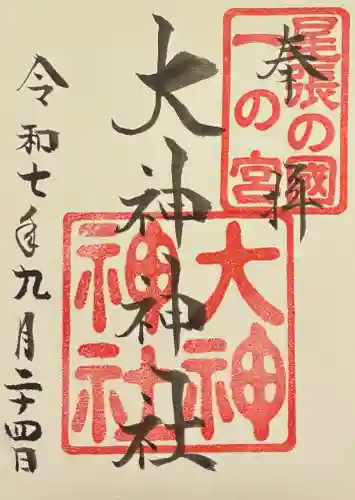 奉拝
尾張の國
一の宮
大神神社
大神
神社
令和七年九月二十四日